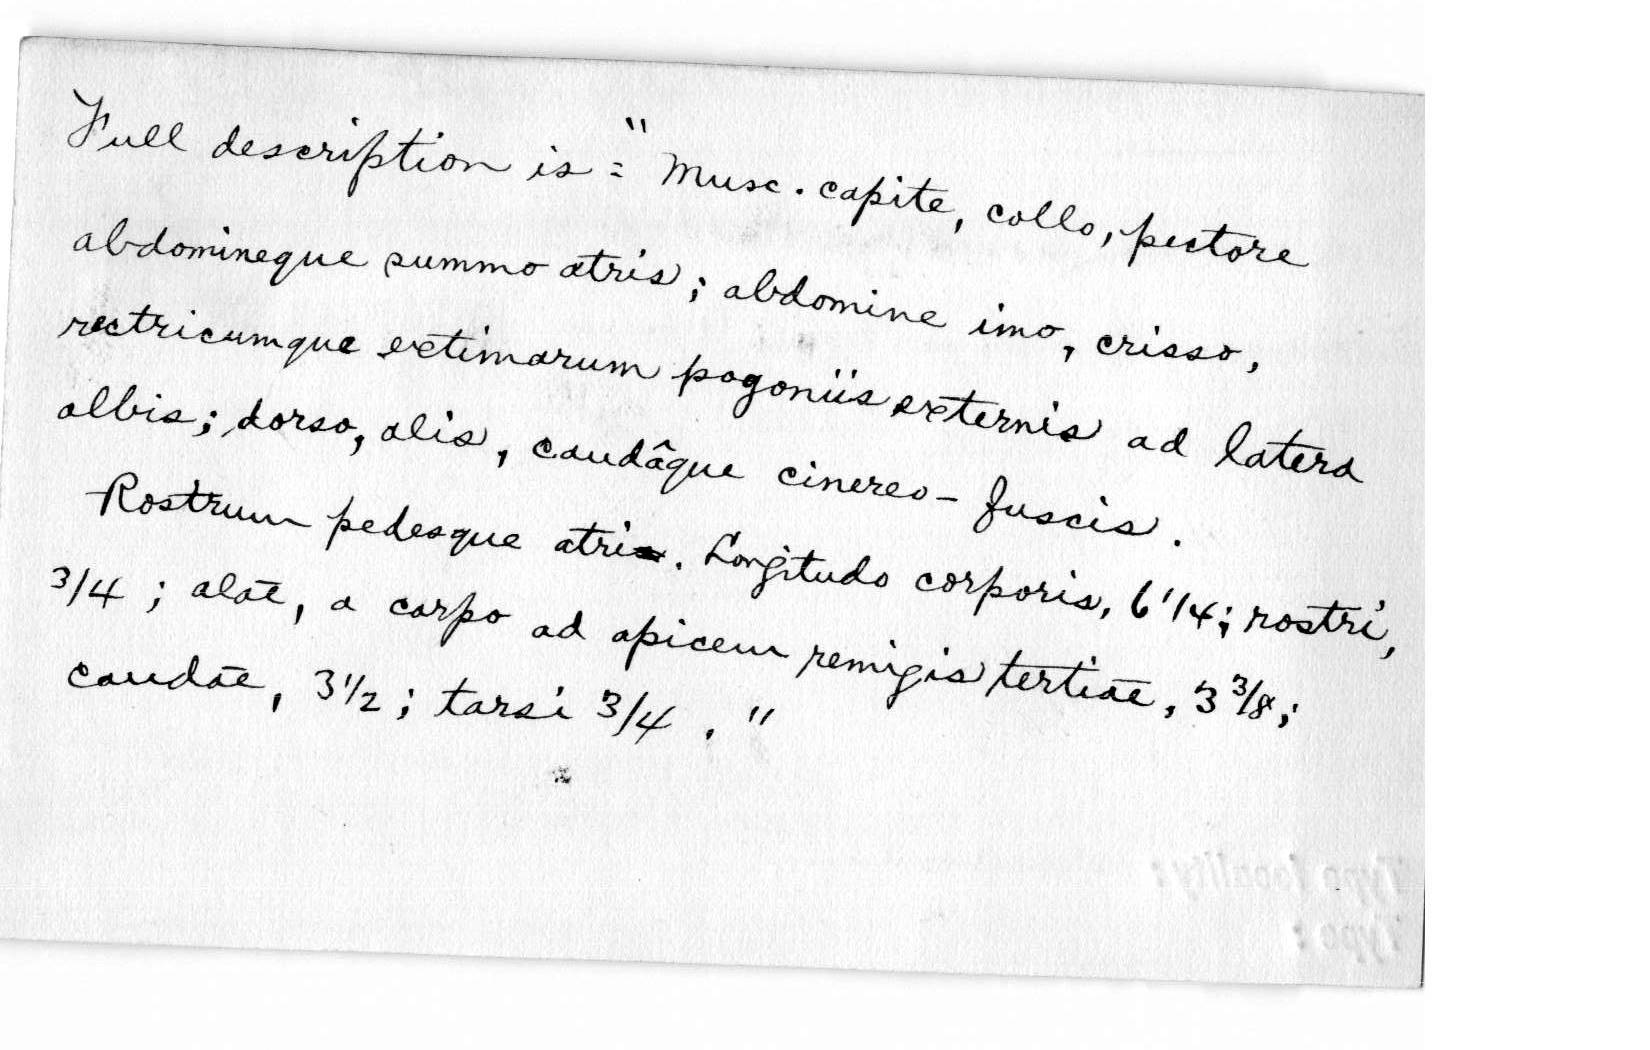 Full description is = "Musc. capite, collo, pectore
abdomineque summo atris; abdomine imo, crisso,
rectricumque extimarum pogoniis externis ad latera
albis; dorso, alis, caudâque cinereo-fuscis.
Rostrum pedesque atri. Longitudo corporis, 6 1/4; rostri,
3/4; alae, a carpo ad apicem remigis tertiae, 3 3/8;
caudae, 3 1/2; tarsi 3/4."
Type locality:
Type: